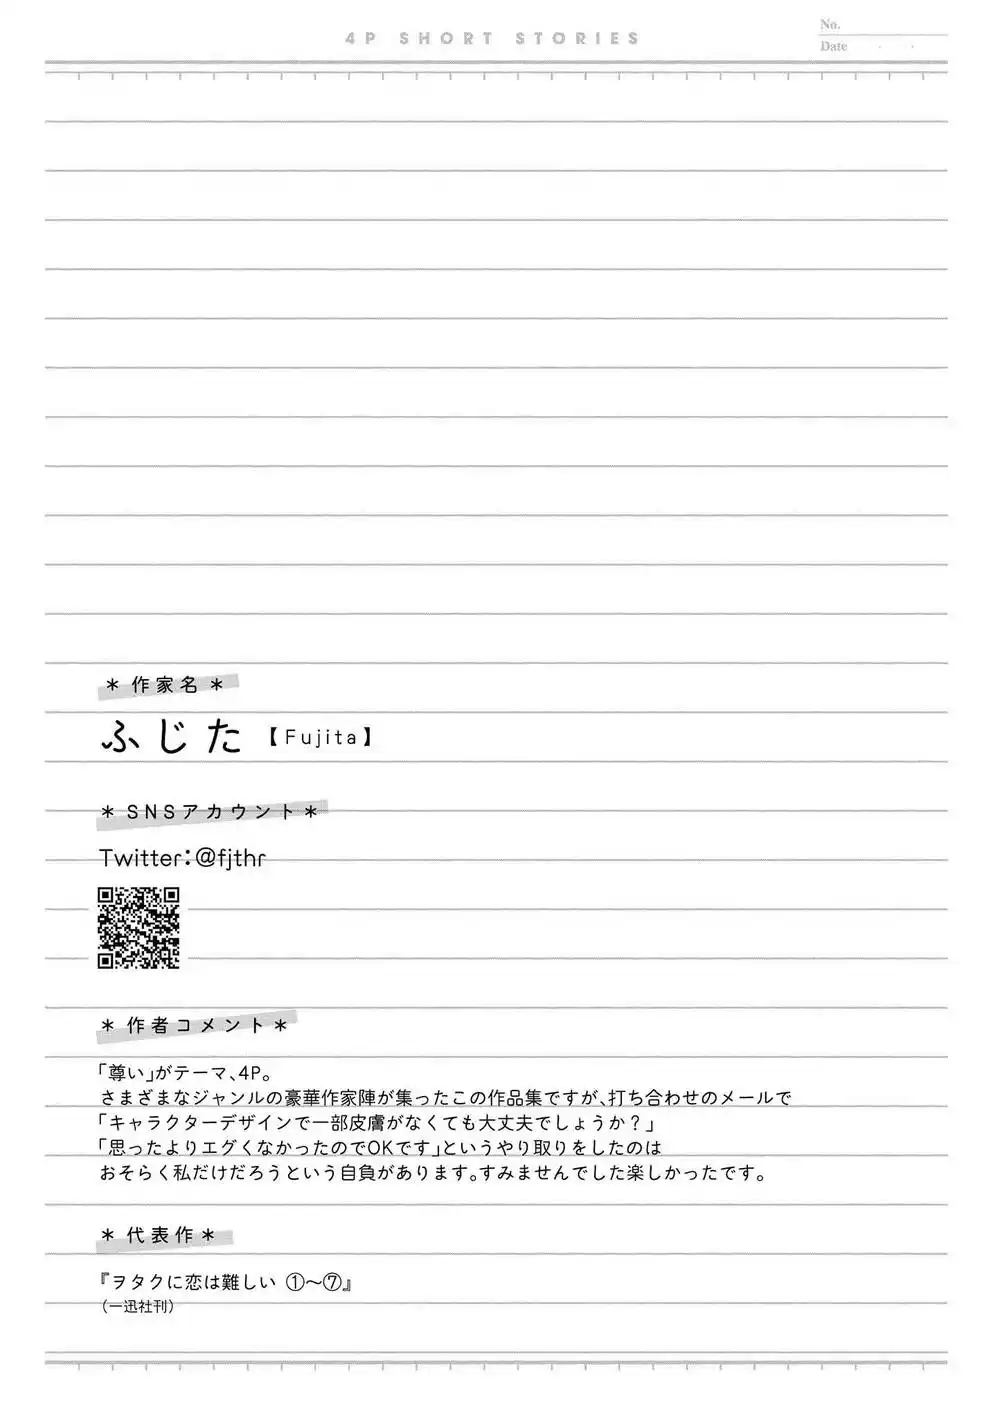 4P SHORT STORIES
No.
Date
＊ 作家名 ＊
ふじた 【Fujita】
＊ SNSアカウント ＊
Twitter：@fjthr
＊ 作者コメント ＊
「尊い」がテーマ、4P。
さまざまなジャンルの豪華作家陣が集ったこの作品集ですが、打ち合わせのメールで
「キャラクターデザインで一部皮膚がなくても大丈夫でしょうか？」
「思ったよりエグくなかったのでOKです」というやり取りをしたのは
おそらく私だけだろうという自負があります。すみませんでした楽しかったです。
＊ 代表作 ＊
『ヲタクに恋は難しい ①～⑦』
（一迅社刊）